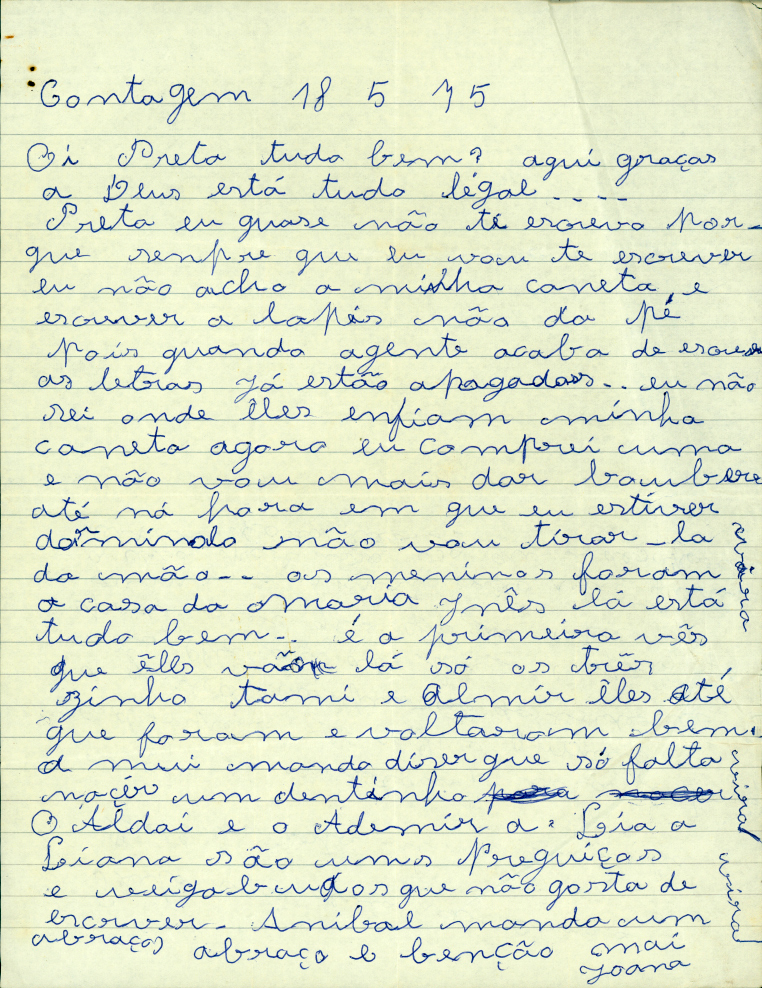 Contagem 18 5 75
Oi Preta tudo bem? aqui graças
a Deus está tudo légal....
Preta eu quase não te escrevo por-
que sempre que eu vou te escrever
eu não acho a minha caneta, e
escrever a lapés não da pé
pois quando agente acaba de escrever
as letras já estão apagadas.. eu não
sei onde êlles enfiam minha
caneta agora eu comprei uma
e não vou mais dar boubere
até ná hora em que eu estiver
dormindo não vou tirar-la
da mão-- os meninos foram
a casa da maria Ynês lá está
tudo bem-. é a primeira vês
que êlles vão lá só os três
zinho tami e Almir êles até
que foram e voltaram bem.
a mui manda diser que só falta
naçêr um dentinho
O Áldai e o Ademir a: Leia a
Liana são ums Preguiças
e veigabundos que não gosta de
escrver- Anibal manda um
abraços abraço e benção mai
Joana
vira
vira
vira